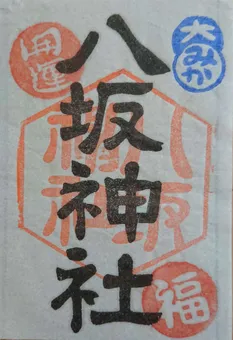 開運
大みか
八坂神社
八坂
神社
福